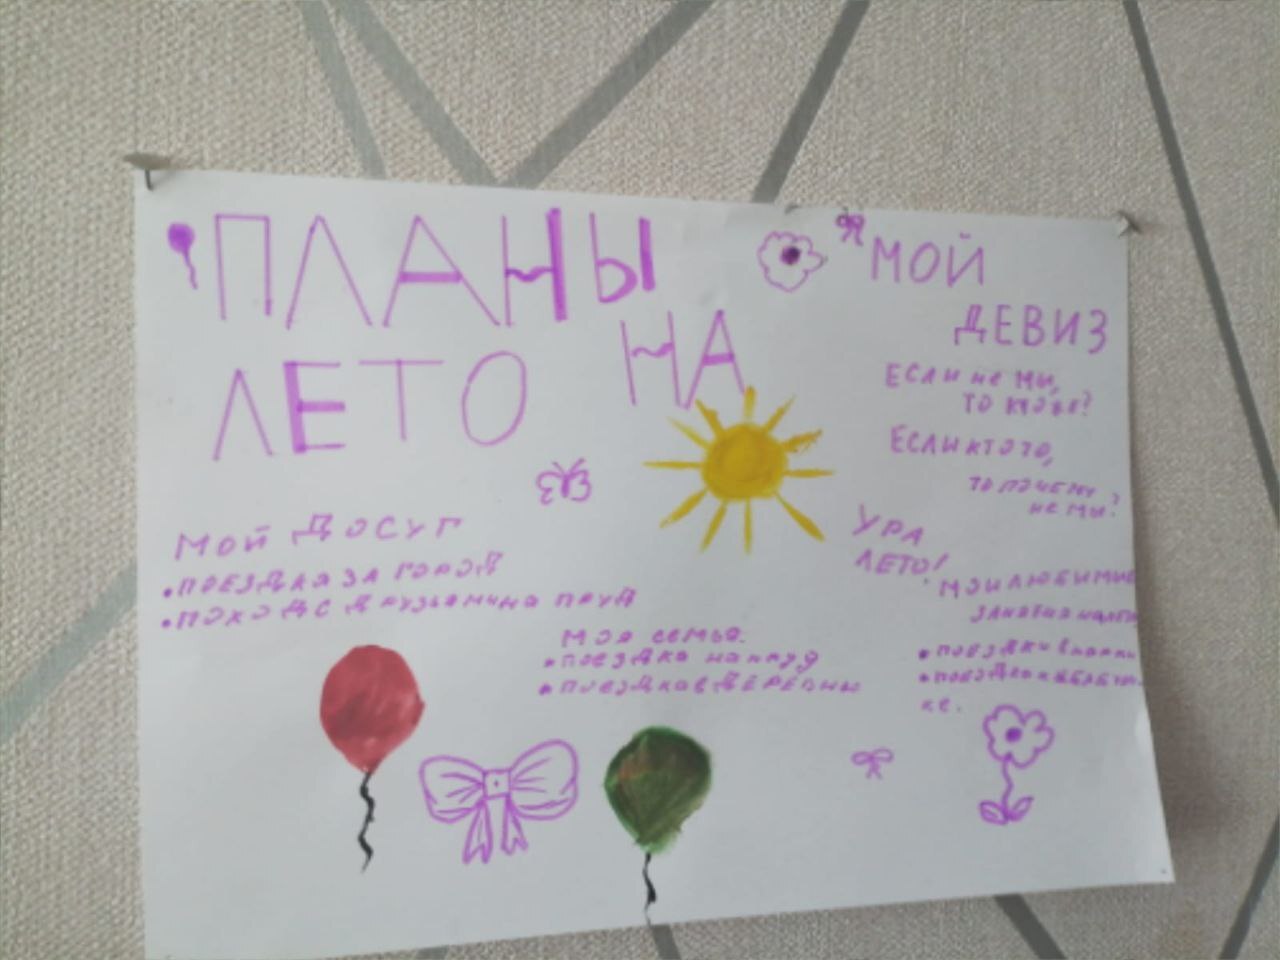 ПЛАНЫ
НА
ЛЕТО
МОЙ
ДЕВИЗ
Если не мы,
то кто же?
Если кто то,
то почему
не мы?
УРА
ЛЕТО!
Мой Досуг
• поездка за город
• поход с друзьями на пруд
Моя семья.
• поездка на пруд
• поездка в ДЕРЕВНЮ
Мои любимые
занятия
• поездки в
• поездка к
ке.